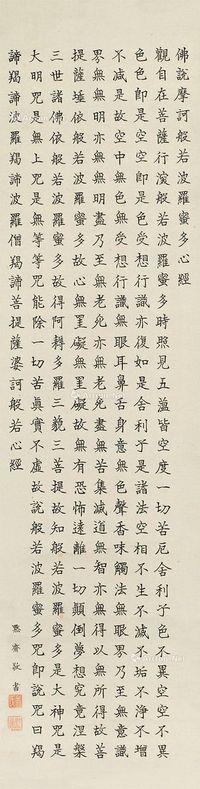 佛說摩訶般若波羅蜜多心經
觀自在菩薩行深般若波羅蜜多時照見五蘊皆空度一切苦厄舍利子色不異空空不異
色色即是空空即是色受想行識亦復如是舍利子是諸法空相不生不滅不垢不淨不增
不減是故空中無色無受想行識無眼耳鼻舌身意無色聲香味觸法無眼界乃至無意識
界無無明亦無無明盡乃至無老死亦無老死盡無苦集滅道無智亦無得以無所得故菩
提薩埵依般若波羅蜜多故心無罣礙無罣礙故無有恐怖遠離一切顛倒夢想究竟涅槃
三世諸佛依般若波羅蜜多故得阿耨多羅三藐三菩提故知般若波羅蜜多是大神咒是
大明咒是無上咒是無等等咒能除一切苦真實不虛故說般若波羅蜜多咒即說咒曰羯
諦羯諦波羅羯諦波羅僧羯諦菩提薩婆訶般若心經
齋敬書